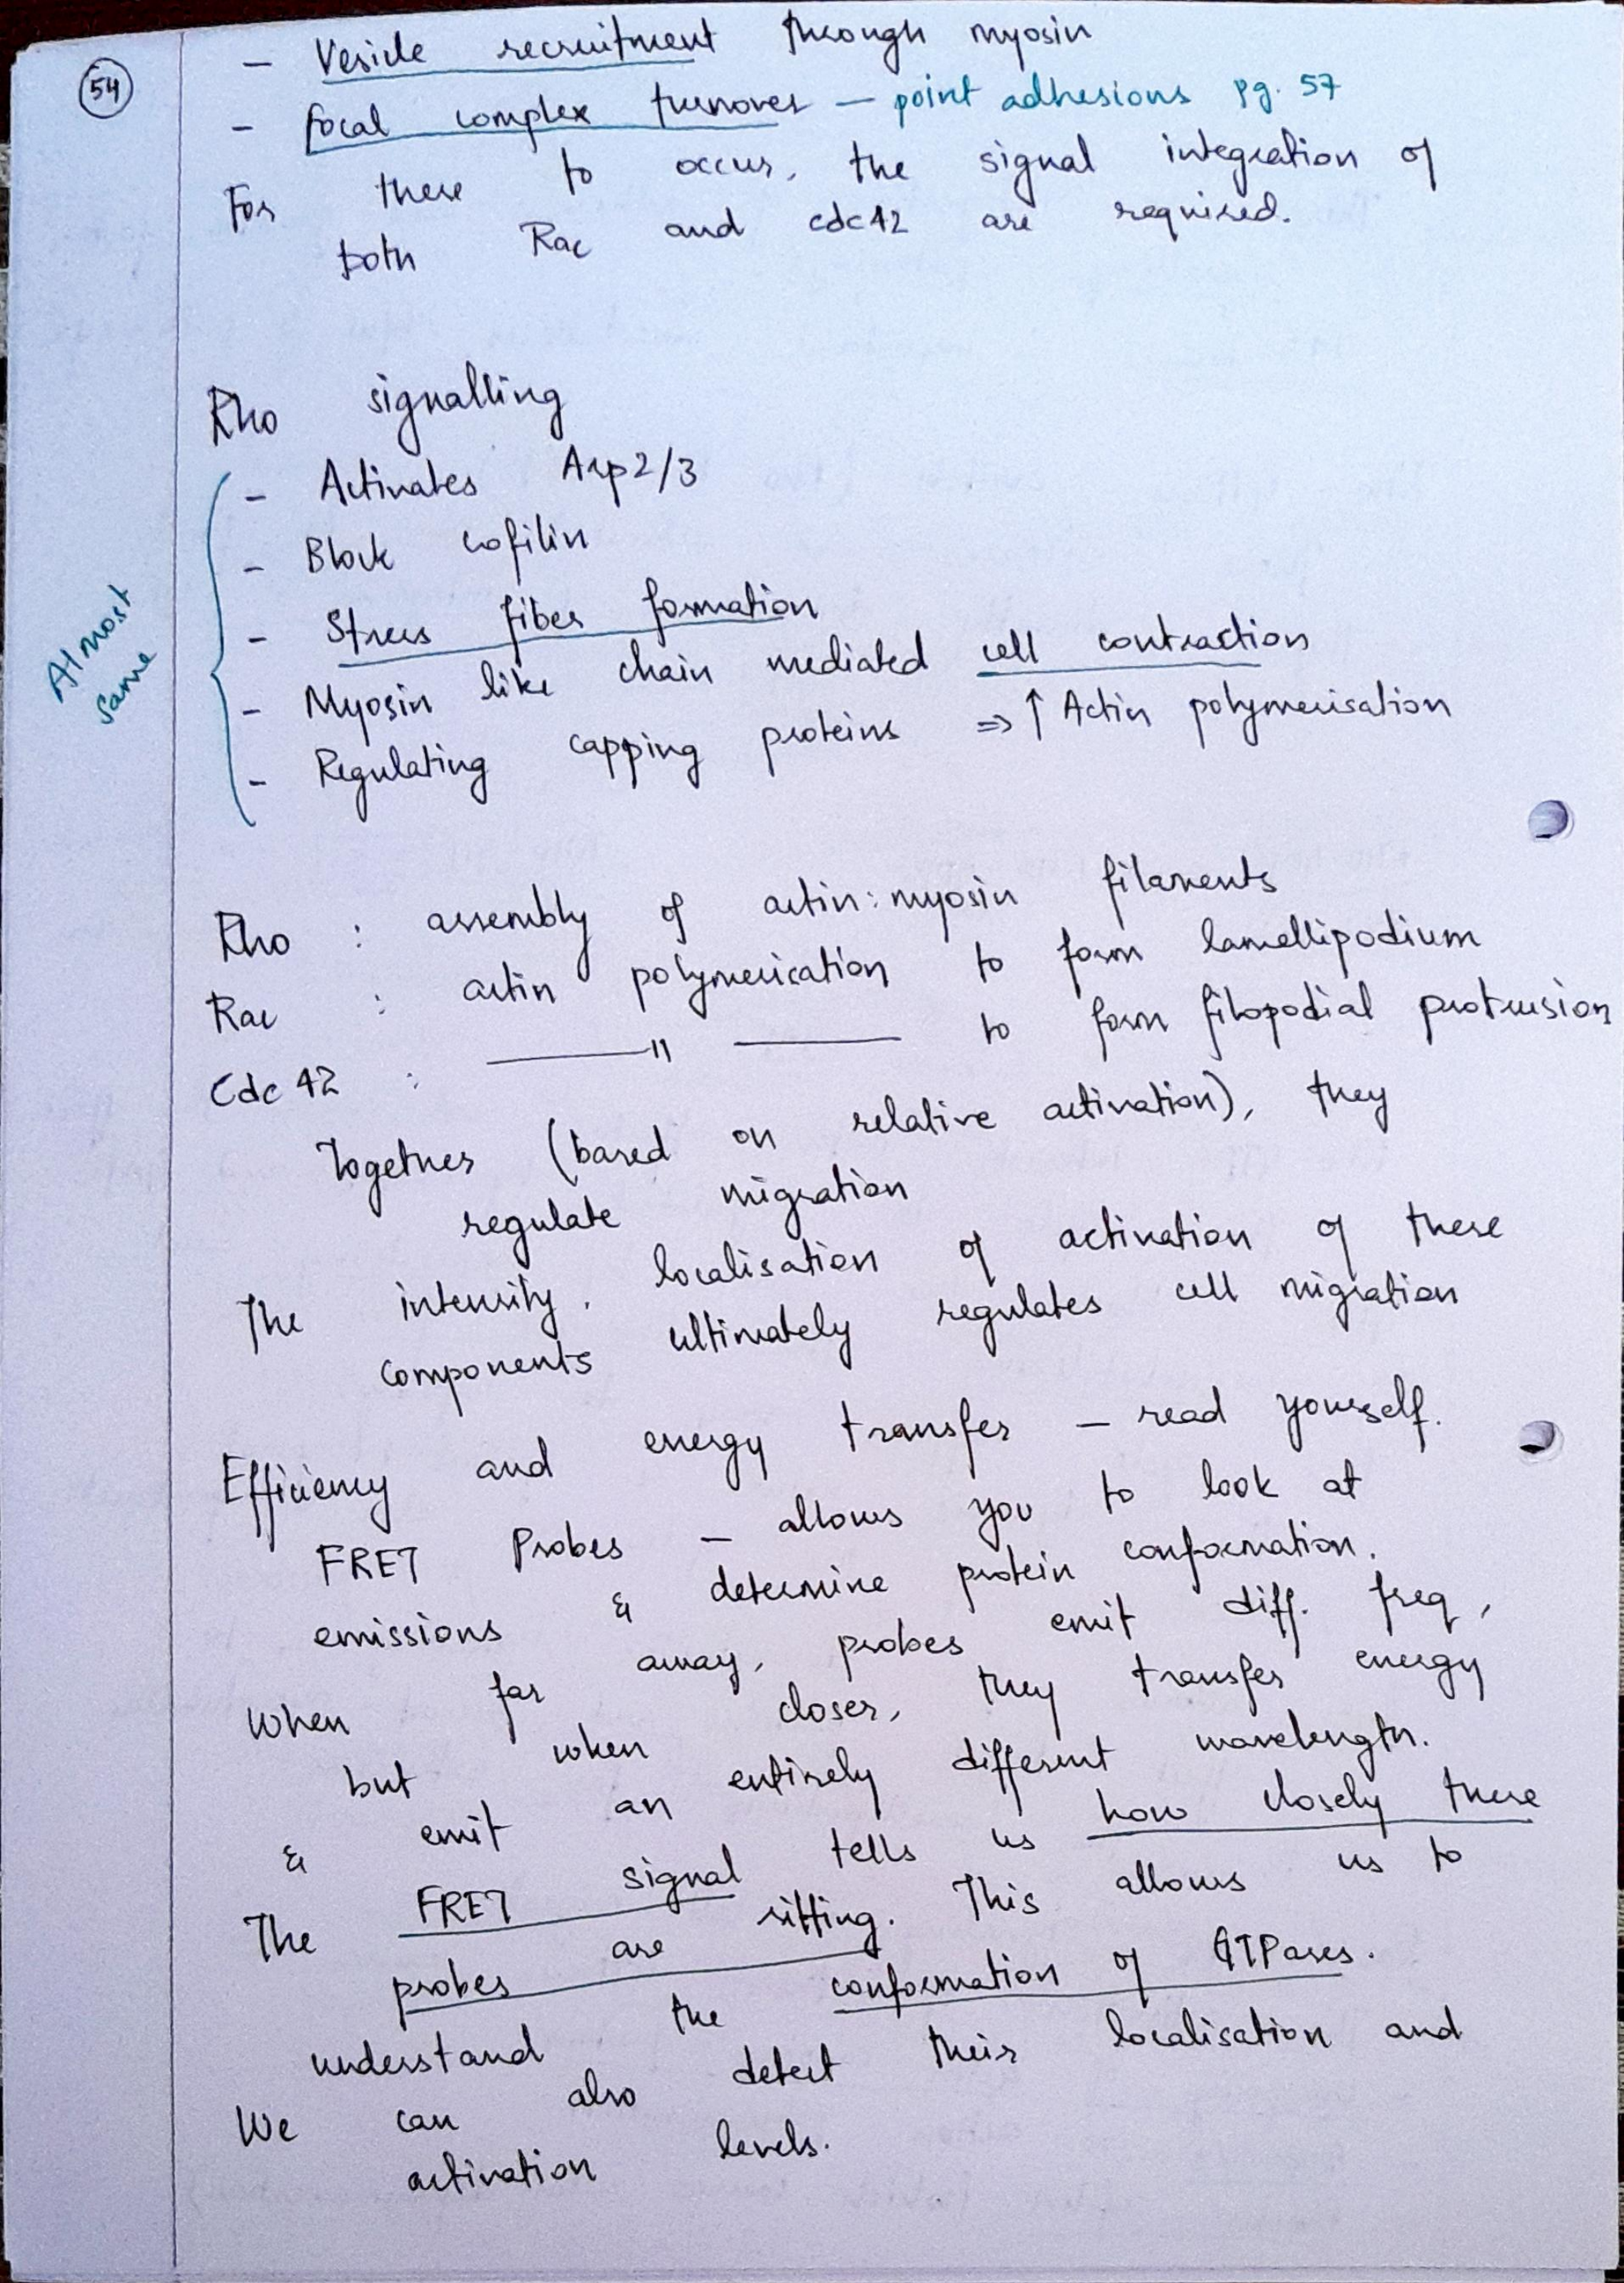 54
- Vesicle recruitment through myosin
- focal complex turnover – point adhesions pg. 57
For these to occur, the signal integration of
both Rac and cdc42 are required.
Rho signalling
- Activates Arp2/3
- Block cofilin
- Stress fiber formation
- Myosin like chain mediated cell contraction
- Regulating capping proteins => ↑ Actin polymerisation
Almost
same
Rho : assembly of actin:myosin filaments
Rac : actin polymerication to form lamellipodium
Cdc 42 : ——"—— to form filopodial protrusion
Together (based on relative activation), they
regulate migration
The intensity, localisation of activation of these
components ultimately regulates cell migration
Efficiency and energy transfer – read yourself.
FRET Probes – allows you to look at
emissions & determine protein conformation.
When far away, probes emit diff. freq,
but when closer, they transfer energy
& emit an entirely different wavelength.
The FRET signal tells us how closely these
probes are sitting. This allows us to
understand the conformation of GTPases.
We can also detect their localisation and
activation levels.